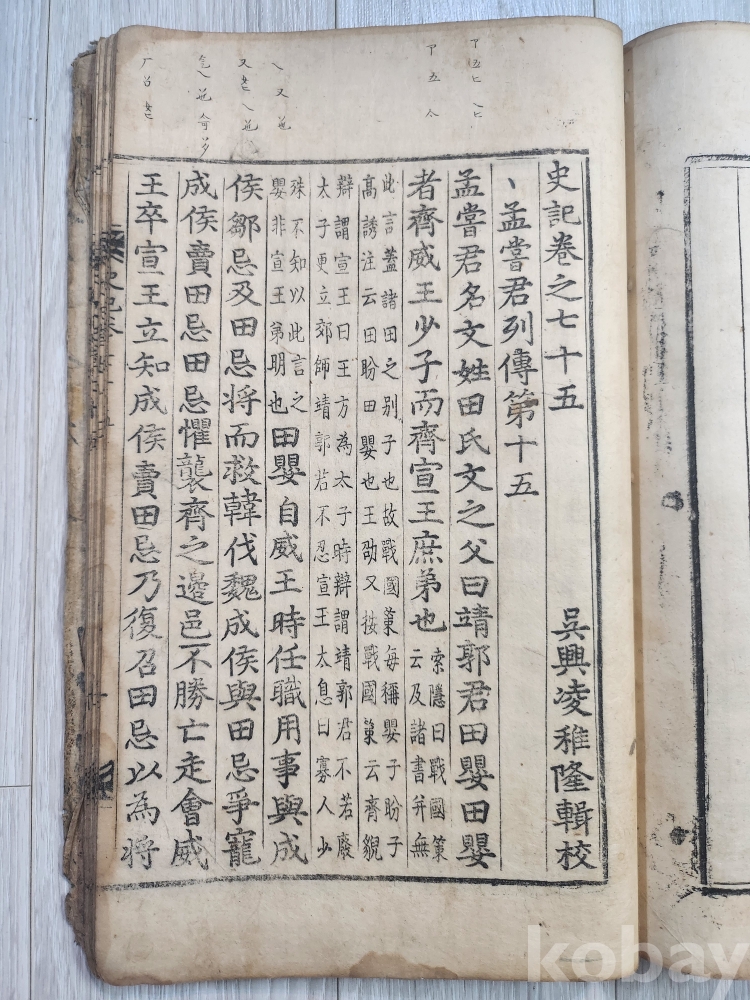 史記卷之七十五 吳興凌稚隆輯校
、孟嘗君列傳第十五
孟嘗君名文姓田氏文之父曰靖郭君田嬰田嬰
者齊威王少子而齊宣王庶弟也
索隱曰戰國策
云及諸書并無
此言蓋諸田之別子也故戰國策每稱嬰子盼子
高誘注云田盼田嬰也王劭又按戰國策云齊貌
辯謂宣王曰王方為太子時辯謂靖郭君不若廢
太子更立郊師靖郭若不忍宣王太息曰寡人少
殊不知以此言之
嬰非宣王弟明也
田嬰自威王時任職用事與成
侯鄒忌及田忌將而救韓伐魏成侯與田忌爭寵
成侯賣田忌田忌懼襲齊之邊邑不勝亡走會威
王卒宣王立知成侯賣田忌乃復召田忌以為將
kobay